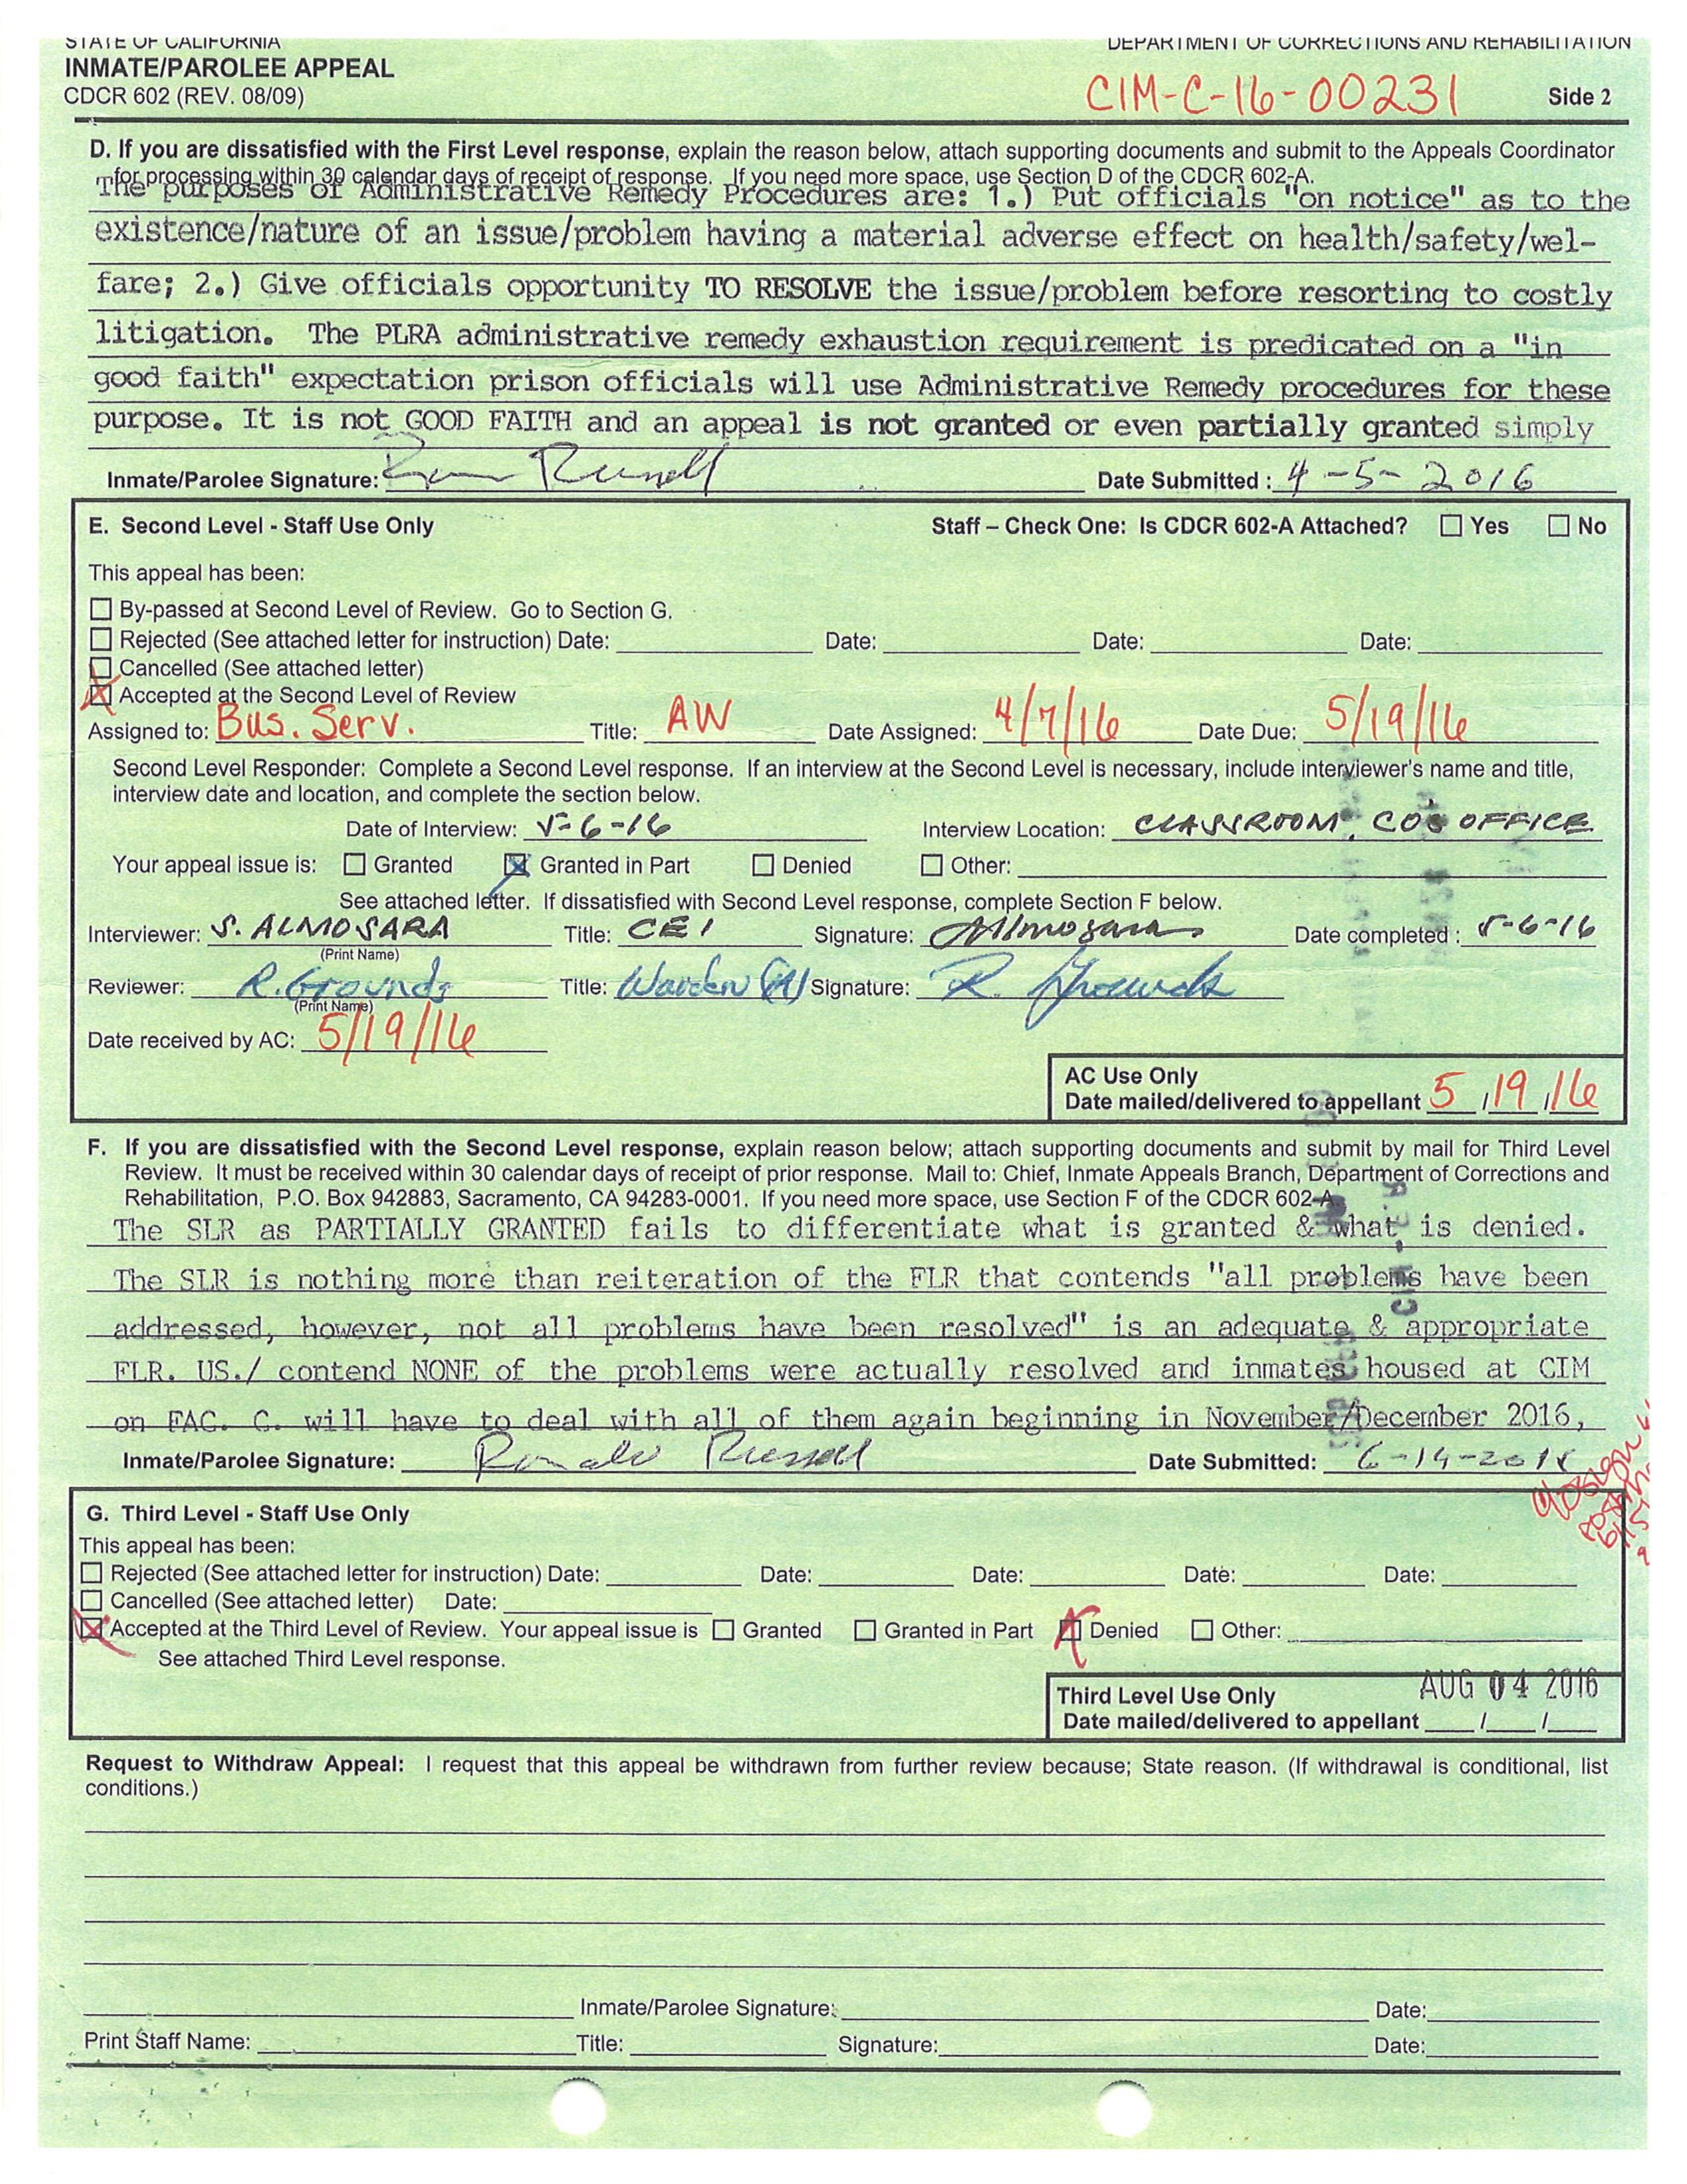 STATE OF CALIFORNIA DEPARTMENT OF CORRECTIONS AND REHABILITATION
INMATE/PAROLEE APPEAL
CDCR 602 (REV. 08/09) CIM-C-16-00231 Side 2
D. If you are dissatisfied with the First Level response, explain the reason below, attach supporting documents and submit to the Appeals Coordinator
for processing within 30 calendar days of receipt of response. If you need more space, use Section D of the CDCR 602-A.
The purposes of Administrative Remedy Procedures are: 1.) Put officials "on notice" as to the
existence/nature of an issue/problem having a material adverse effect on health/safety/wel-
fare; 2.) Give officials opportunity TO RESOLVE the issue/problem before resorting to costly
litigation. The PLRA administrative remedy exhaustion requirement is predicated on a "in
good faith" expectation prison officials will use Administrative Remedy procedures for these
purpose. It is not GOOD FAITH and an appeal is not granted or even partially granted simply
Inmate/Parolee Signature: Russell Date Submitted : 4-5-2016
E. Second Level - Staff Use Only Staff – Check One: Is CDCR 602-A Attached? ☐ Yes ☐ No
This appeal has been:
☐ By-passed at Second Level of Review. Go to Section G.
☐ Rejected (See attached letter for instruction) Date: Date: Date: Date:
☐ Cancelled (See attached letter)
☒ Accepted at the Second Level of Review
Assigned to: Bus. Serv. Title: AW Date Assigned: 4/7/16 Date Due: 5/19/16
Second Level Responder: Complete a Second Level response. If an interview at the Second Level is necessary, include interviewer's name and title,
interview date and location, and complete the section below.
Date of Interview: 5-6-16 Interview Location: CLASSROOM, CO'S OFFICE
Your appeal issue is: ☐ Granted ☒ Granted in Part ☐ Denied ☐ Other:
See attached letter. If dissatisfied with Second Level response, complete Section F below.
Interviewer: S. ALMOSARA Title: CE I Signature: Almosara Date completed : 5-6-16
(Print Name)
Reviewer: R. Grounds Title: Warden (A) Signature: R. Grounds
(Print Name)
Date received by AC: 5/19/16
AC Use Only
Date mailed/delivered to appellant 5 / 19 / 16
F. If you are dissatisfied with the Second Level response, explain reason below; attach supporting documents and submit by mail for Third Level
Review. It must be received within 30 calendar days of receipt of prior response. Mail to: Chief, Inmate Appeals Branch, Department of Corrections and
Rehabilitation, P.O. Box 942883, Sacramento, CA 94283-0001. If you need more space, use Section F of the CDCR 602-A.
The SLR as PARTIALLY GRANTED fails to differentiate what is granted & what is denied.
The SLR is nothing more than reiteration of the FLR that contends "all problems have been
addressed, however, not all problems have been resolved" is an adequate & appropriate
FLR. US./ contend NONE of the problems were actually resolved and inmates housed at CIM
on FAC. C. will have to deal with all of them again beginning in November/December 2016,
Inmate/Parolee Signature: Ronald Russell Date Submitted: 6-14-2016
G. Third Level - Staff Use Only
This appeal has been:
☐ Rejected (See attached letter for instruction) Date: Date: Date: Date: Date:
☐ Cancelled (See attached letter) Date:
☒ Accepted at the Third Level of Review. Your appeal issue is ☐ Granted ☐ Granted in Part ☒ Denied ☐ Other:
See attached Third Level response.
AUG 04 2016
Third Level Use Only
Date mailed/delivered to appellant / /
Request to Withdraw Appeal: I request that this appeal be withdrawn from further review because; State reason. (If withdrawal is conditional, list
conditions.)
Inmate/Parolee Signature: Date:
Print Staff Name: Title: Signature: Date: